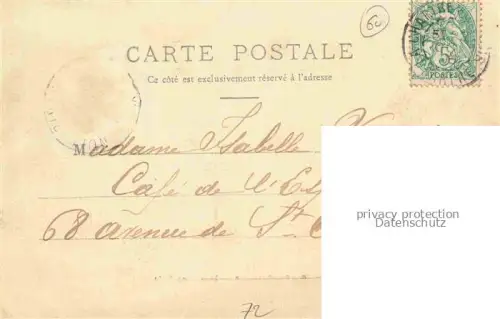 60
CARTE POSTALE
Ce côté est exclusivement réservé à l'adresse
5c
POSTES
Madame Isabelle
Café de l'Es
68 avenue de St
privacy protection
Datenschutz
72